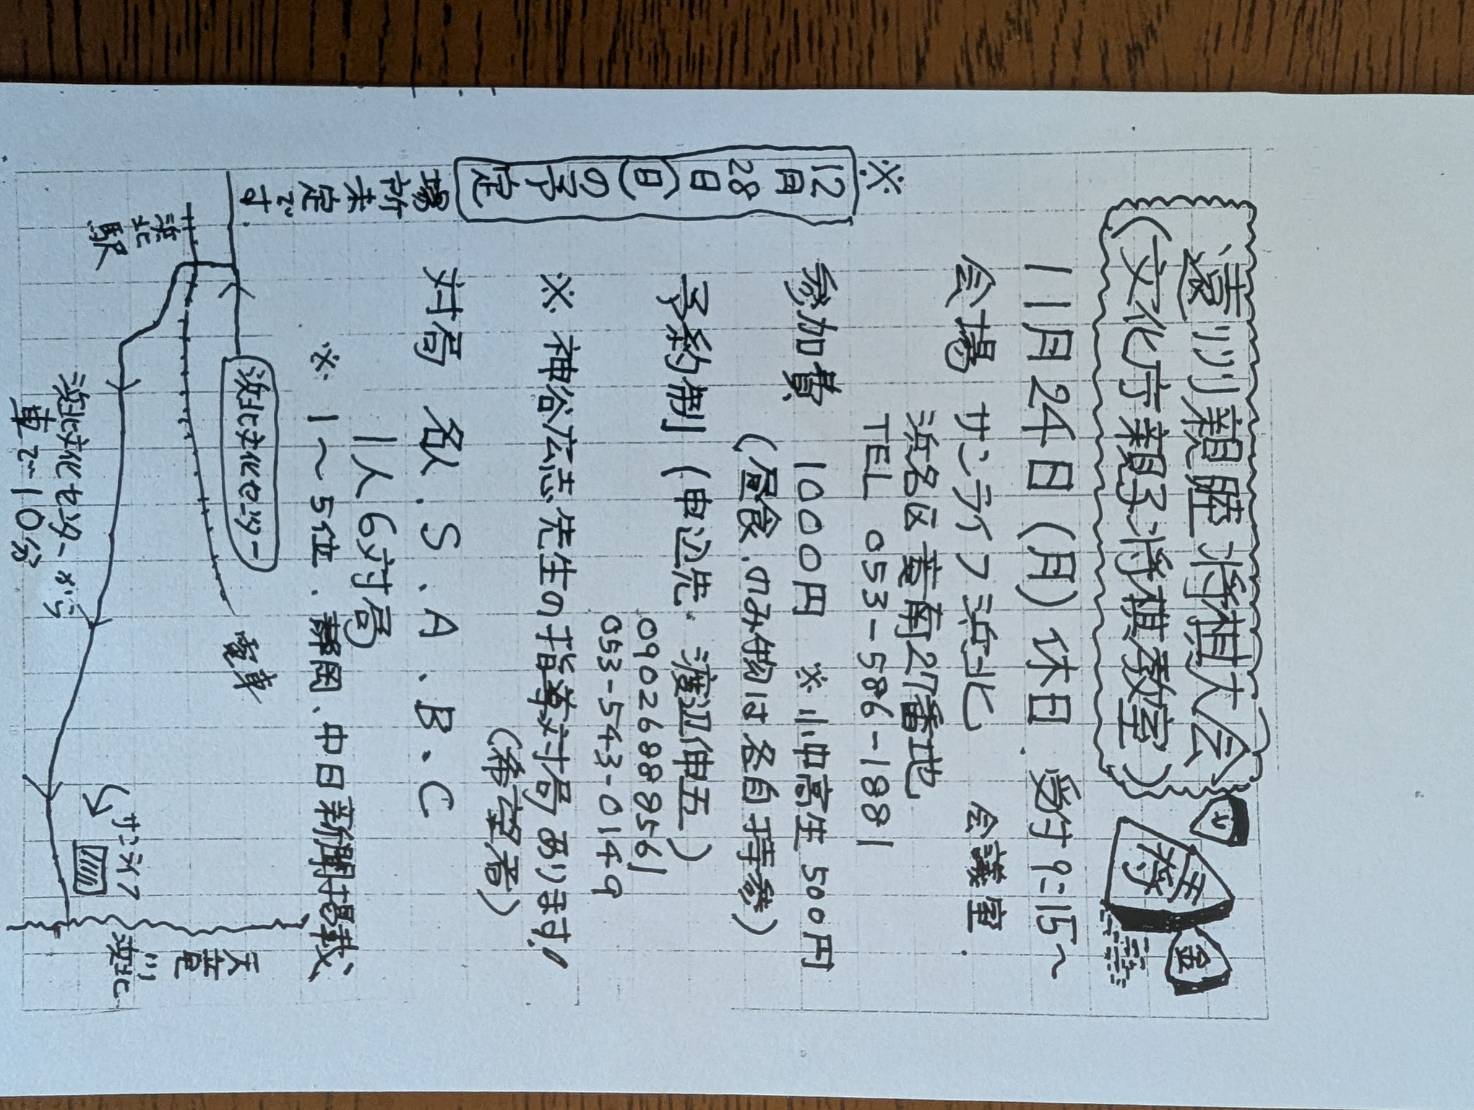 遠州親睦将棋大会
(文化庁親子将棋教室)
歩
王将
金
11月24日(月)休日.受付9:15〜
会場 サンライフ浜北 会議室.
浜名区貴布祢南27番地
TEL 053-586-1881
参加費 1000円 ※小中高生500円
(昼食、のみ物は各自持参)
予約制(申込先.渡辺伸五)
09026888561
053-543-0149
※神谷広志先生の指導対局あります!
(希望者)
対局 名人.S.A.B.C
1人6対局
※1〜5位.静岡、中日新聞掲載、
※
12月28日(日)の予定
場所未定です.
浜北文化センター
電車
浜北駅
浜北文化センターから
車で10分
サンライフ
天竜川